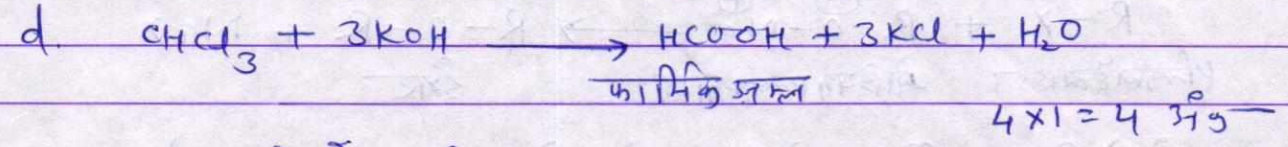 d. CHCl₃ + 3KOH ⟶ HCOOH + 3KCl + H₂O
फार्मिक अम्ल
4×1 = 4 अंक